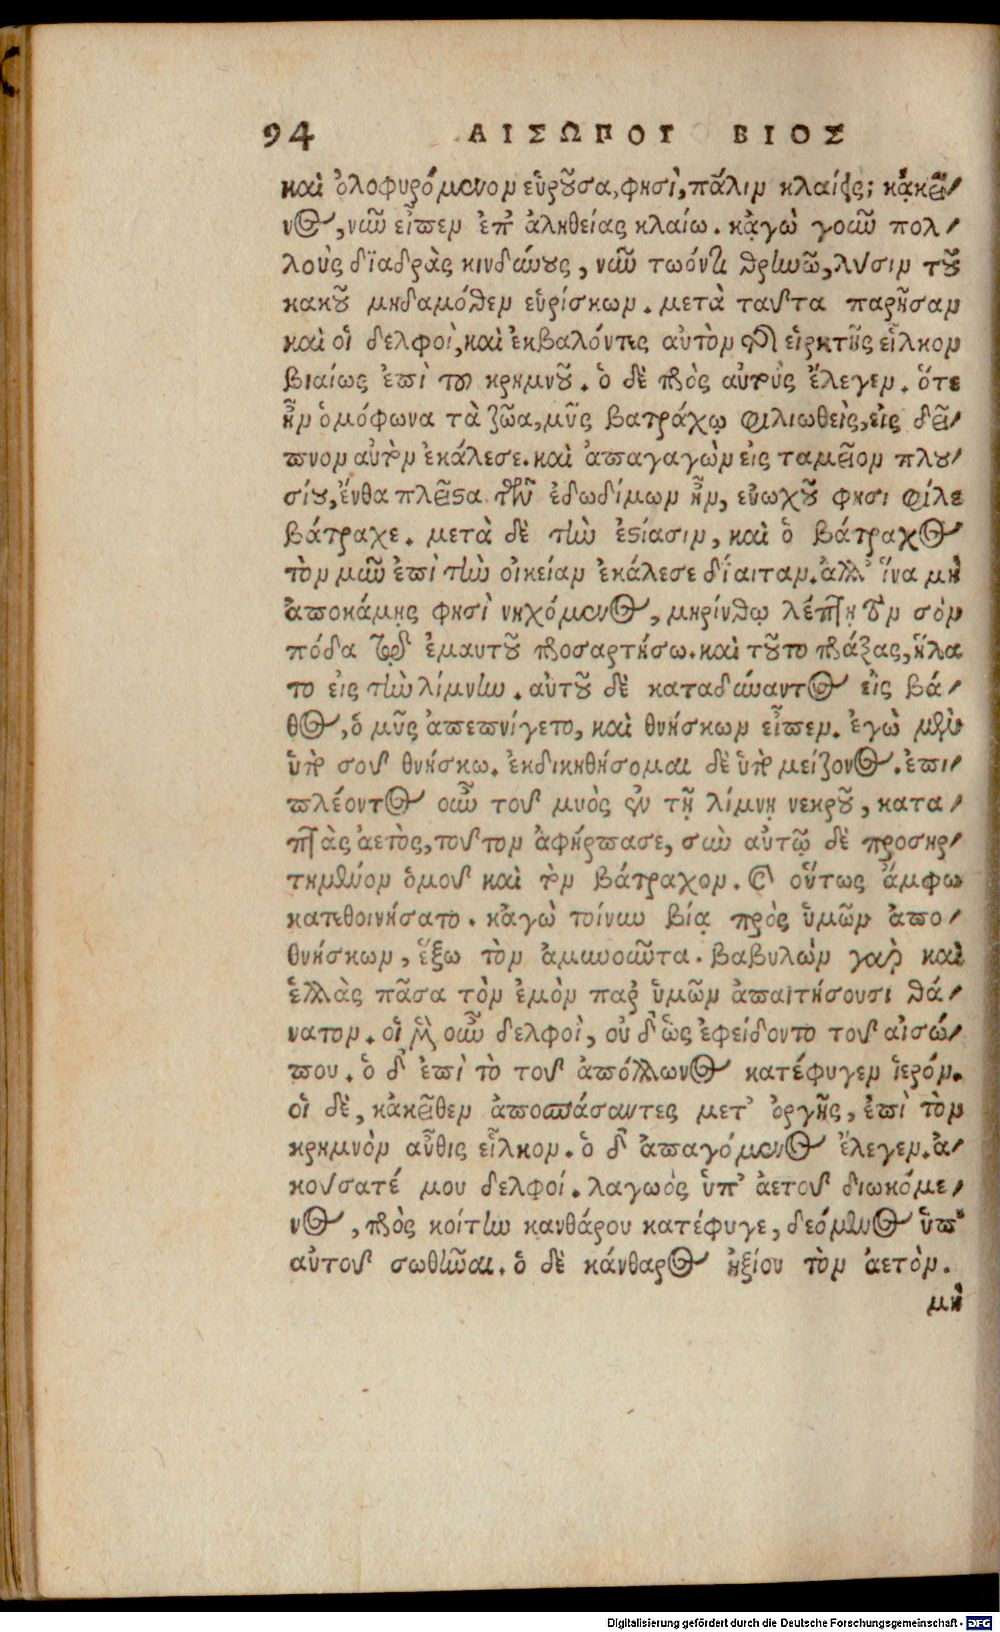 94 ΑΙΣΩΠΟΥ ΒΙΟΣ
καὶ ὀλοφυρόμενον εὑροῦσα, φησὶ, πάλιν κλαίεις; κᾀκεῖ-
νος, νῦν εἶπεν ἐπ' ἀληθείας κλαίω. κᾀγὼ γοῦν πολ-
λοὺς διαδρὰς κινδύνους, νῦν τωόντι θρηνῶ, λύσιν τοῦ
κακοῦ μηδαμόθεν εὑρίσκων. μετὰ ταῦτα παρῆσαν
καὶ οἱ δελφοὶ, καὶ ἐκβαλόντες αὐτὸν τῆς εἱρκτῆς εἷλκον
βιαίως ἐπὶ του κρημνοῦ. ὁ δὲ πρὸς αὐτοὺς ἔλεγεν. ὅτε
ἦν ὁμόφωνα τὰ ζῶα, μῦς βατράχῳ φιλιωθεὶς, εἰς δεῖ-
πνον αὐτὸν ἐκάλεσε. καὶ ἀπαγαγὼν εἰς ταμεῖον πλου-
σίου, ἔνθα πλεῖστα τῶν ἐδωδίμων ἦν, εὐωχοῦ φησι φίλε
βάτραχε. μετὰ δὲ τὴν ἑστίασιν, καὶ ὁ βάτραχος
τὸν μῦν ἐπὶ τὴν οἰκείαν ἐκάλεσε δίαιταν. ἀλλ' ἵνα μὴ
ἀποκάμῃς φησὶ νηχόμενος, μηρίνθῳ λεπτῇ τὸν σὸν
πόδα τῷ ἐμαυτοῦ προσαρτήσω. καὶ τοῦτο πράξας, ἥλα
το εἰς τὴν λίμνην. αὐτοῦ δὲ καταδύναντος εἰς βά-
θος, ὁ μῦς ἀπεπνίγετο, καὶ θνήσκων εἶπεν. ἐγὼ μὲν
ὑπὸ σοῦ θνήσκω. ἐκδικηθήσομαι δὲ ὑπὸ μείζονος. ἐπι-
πλέοντος οὖν τοῦ μυὸς ἐν τῇ λίμνῃ νεκροῦ, κατα-
πτὰς ἀετὸς, τοῦτον ἀφήρπασε, σὺν αὐτῷ δὲ προσηρ-
τημένον ὁμοῦ καὶ τὸν βάτραχον. καὶ οὕτως ἄμφω
κατεθοινήσατο. κᾀγὼ τοίνυν βίᾳ πρὸς ὑμῶν ἀπο-
θνήσκων, ἕξω τὸν ἀμυνοῦντα. βαβυλὼν γὰρ καὶ
ἑλλὰς πᾶσα τὸν ἐμὸν παρ' ὑμῶν ἀπαιτήσουσι θά-
νατον. οἱ μὲν οὖν δελφοὶ, οὐδ' ὣς ἐφείδοντο τοῦ αἰσώ-
που. ὁ δ' ἐπὶ τὸ τοῦ ἀπόλλωνος κατέφυγεν ἱερόν.
οἱ δὲ, κἀκεῖθεν ἀποσπάσαντες μετ' ὀργῆς, ἐπὶ τὸν
κρημνὸν αὖθις εἷλκον. ὁ δ' ἀπαγόμενος ἔλεγεν. ἀ-
κούσατέ μου δελφοί. λαγωὸς ὑπ' ἀετοῦ διωκόμε-
νος, πρὸς κοίτην κανθάρου κατέφυγε, δεόμενος ὑπ'
αὐτοῦ σωθῆναι. ὁ δὲ κάνθαρος ἠξίου τὸν ἀετὸν.
μὴ
Digitalisierung gefördert durch die Deutsche Forschungsgemeinschaft - DFG